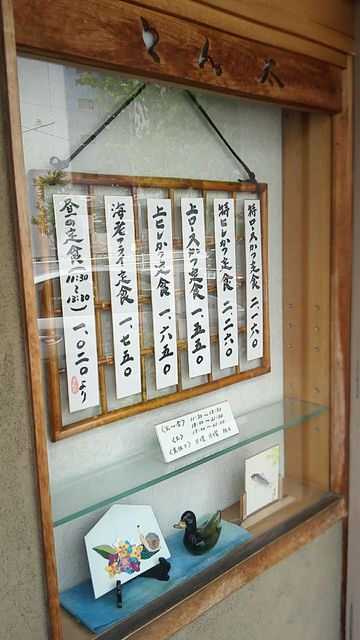 とん太
特ロースかつ定食 二、一六〇
特ヒレかつ定食 二、二六〇
上ロースかつ定食 一、五五〇
上ヒレかつ定食 一、六五〇
海老フライ定食 一、七五〇
昼の定食(11:30〜13:30)一、〇二〇より
〈火〜金〉 11:30〜13:30
18:00〜21:00
〈土〉 17:00〜21:00
〈定休日〉 日曜 月曜 祝日